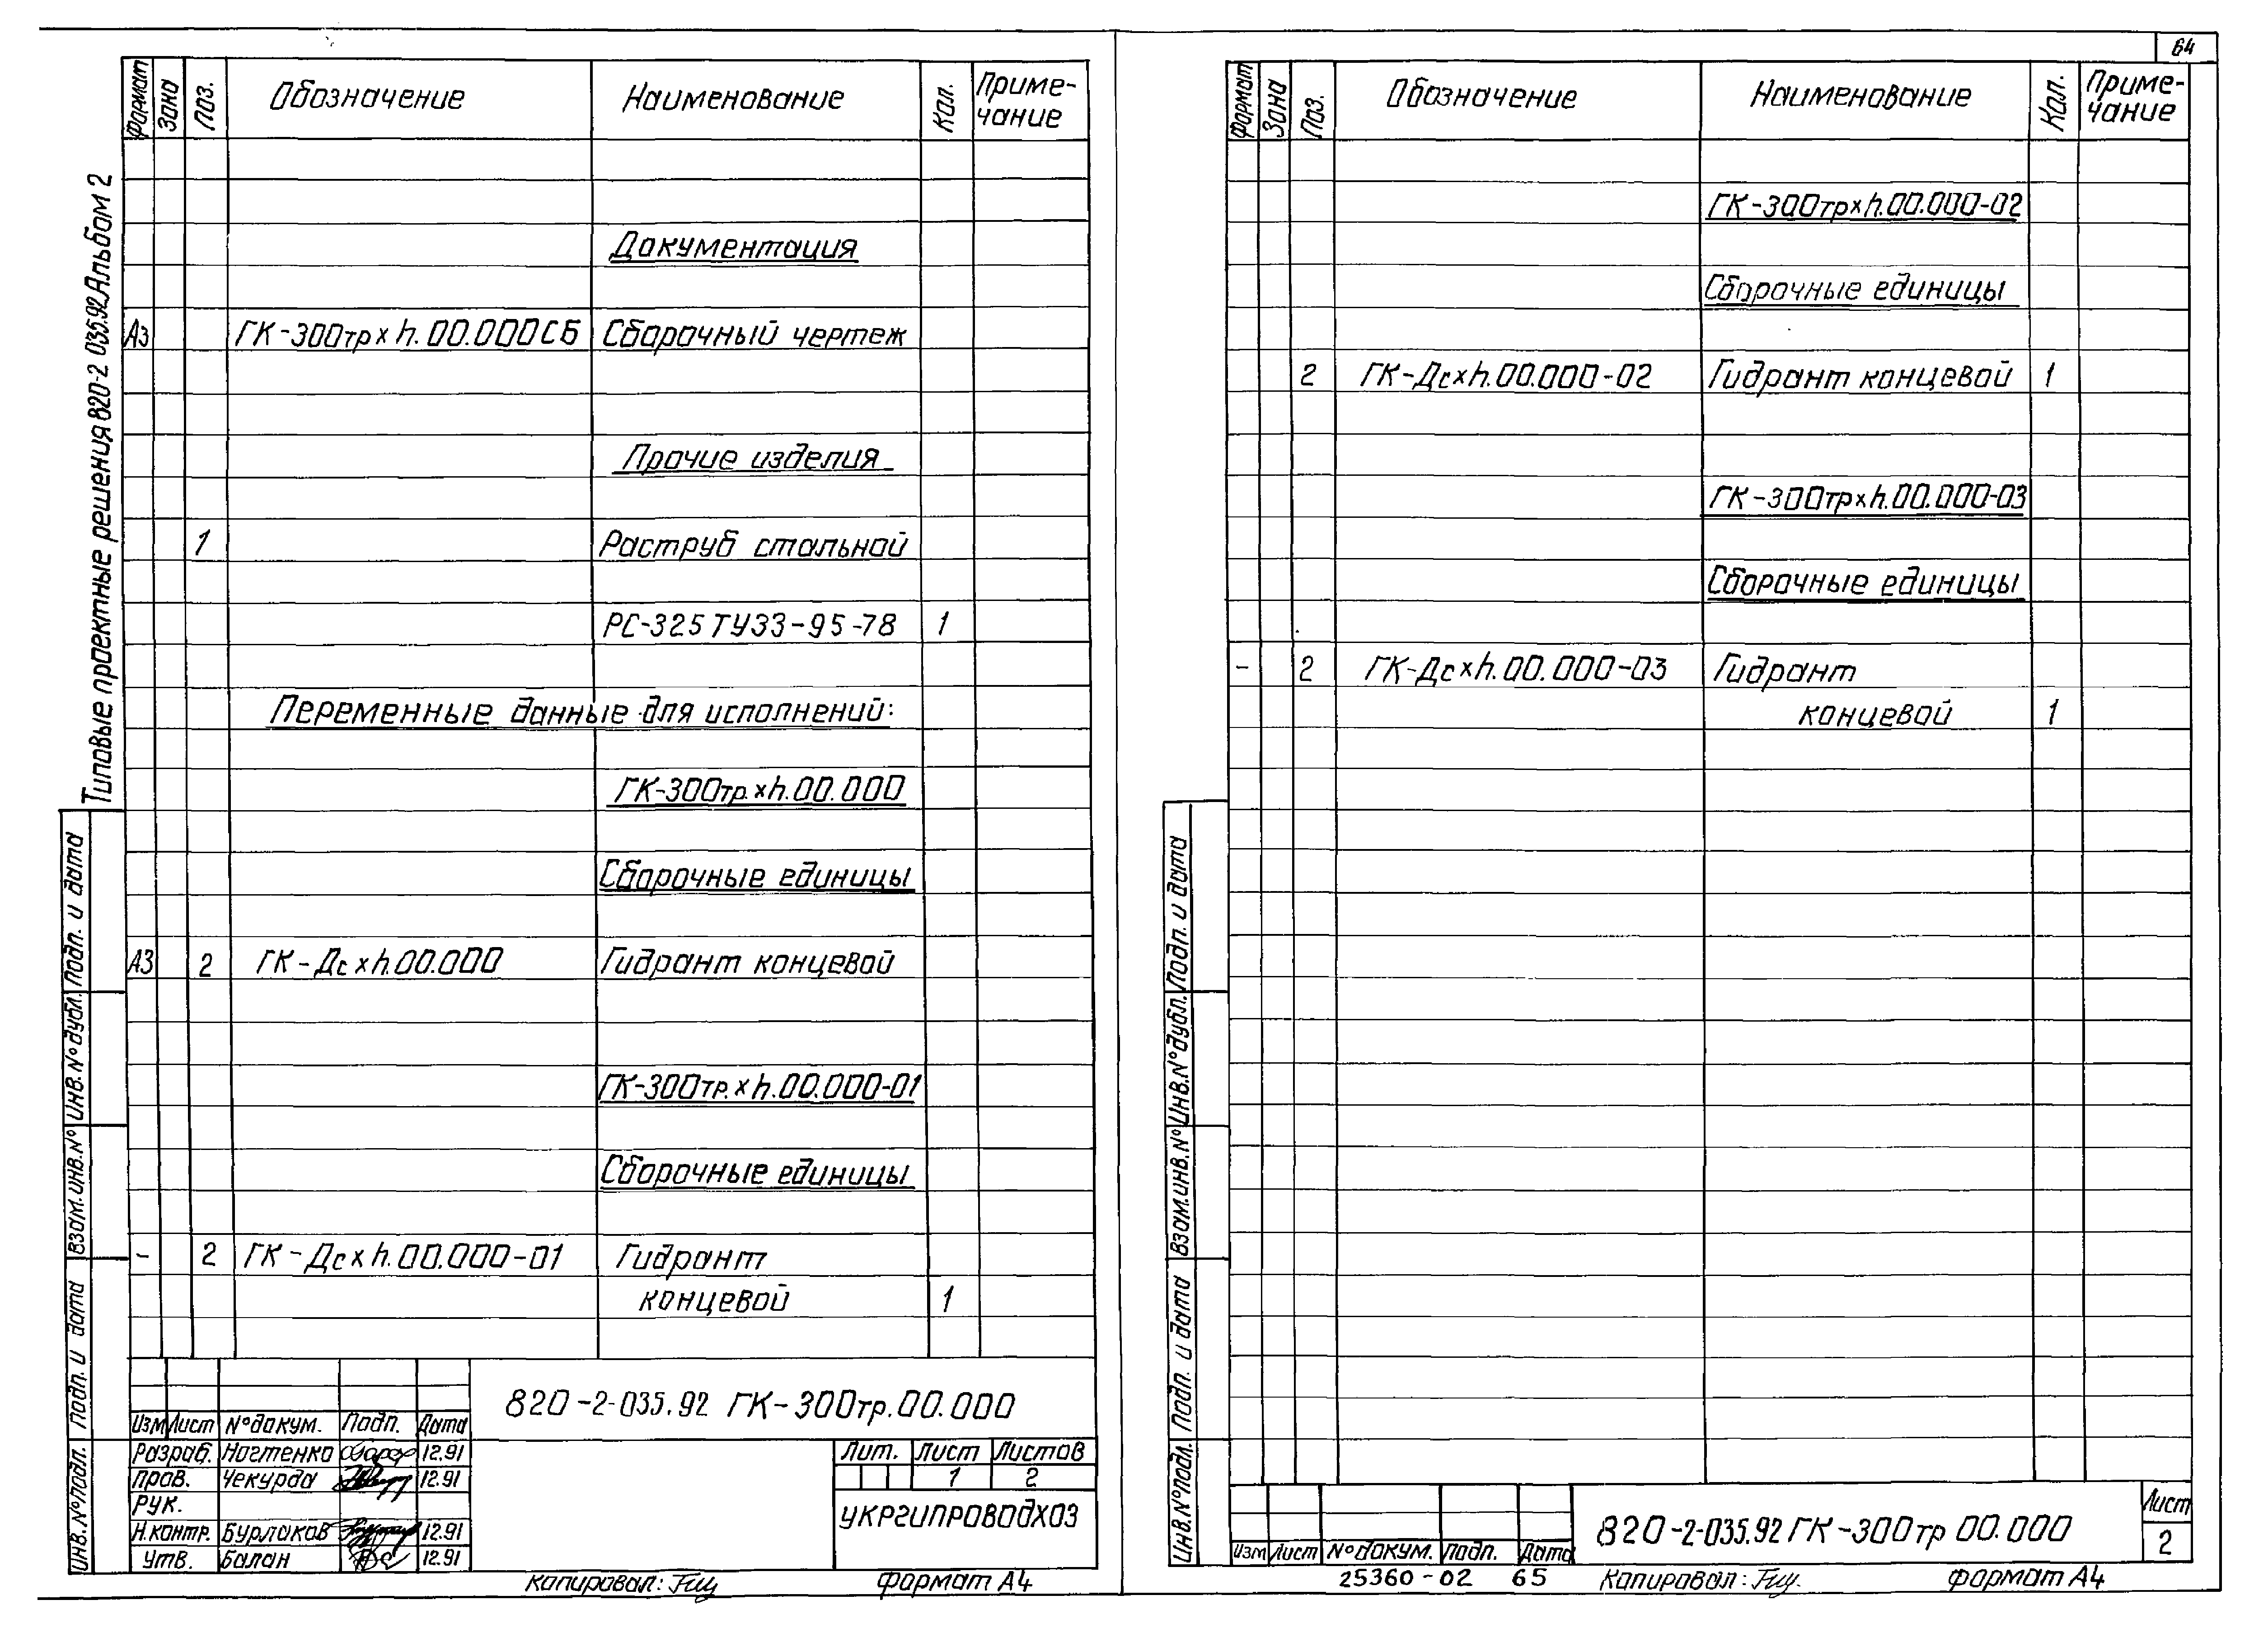 Типовые проектные решения 820-2 035.92 Альбом 2
Формат Зона Поз. Обозначение Наименование Кол. Приме-
чание
Документация
А3 ГК-300тр х h.00.000СБ Сборочный чертеж
Прочие изделия
1 Раструб стальной
РС-325 ТУ33-95-78 1
Переменные данные для исполнений:
ГК-300тр.хh.00.000
Сборочные единицы
А3 2 ГК-Дс х h.00.000 Гидрант концевой
ГК-300тр.х h.00.000-01
Сборочные единицы
- 2 ГК-Дс х h.00.000-01 Гидрант
концевой 1
Инв.№подл. Подп. и дата Взам.инв.№ Инв.№дубл. Подп. и дата
820-2-035.92 ГК-300тр.00.000
Изм Лист №докум. Подп. Дата
Разраб. Ногтенко 12.91
Пров. Чекурда 12.91
Рук.
Н.контр. Бурлаков 12.91
Утв. Балан 12.91
Лит. Лист Листов
1 2
Укргипроводхоз
Копировал: Формат А4
64
Формат Зона Поз. Обозначение Наименование Кол. Приме-
чание
ГК-300трхh.00.000-02
Сборочные единицы
2 ГК-Дсхh.00.000-02 Гидрант концевой 1
ГК-300трхh.00.000-03
Сборочные единицы
- 2 ГК-Дсхh.00.000-03 Гидрант
концевой 1
Инв.№подл. Подп. и дата Взам.инв.№ Инв.№дубл. Подп. и дата
820-2-035.92 ГК-300тр 00.000
Лист
2
Изм Лист №докум. Подп. Дата
25360-02 65 Копировал: Формат А4